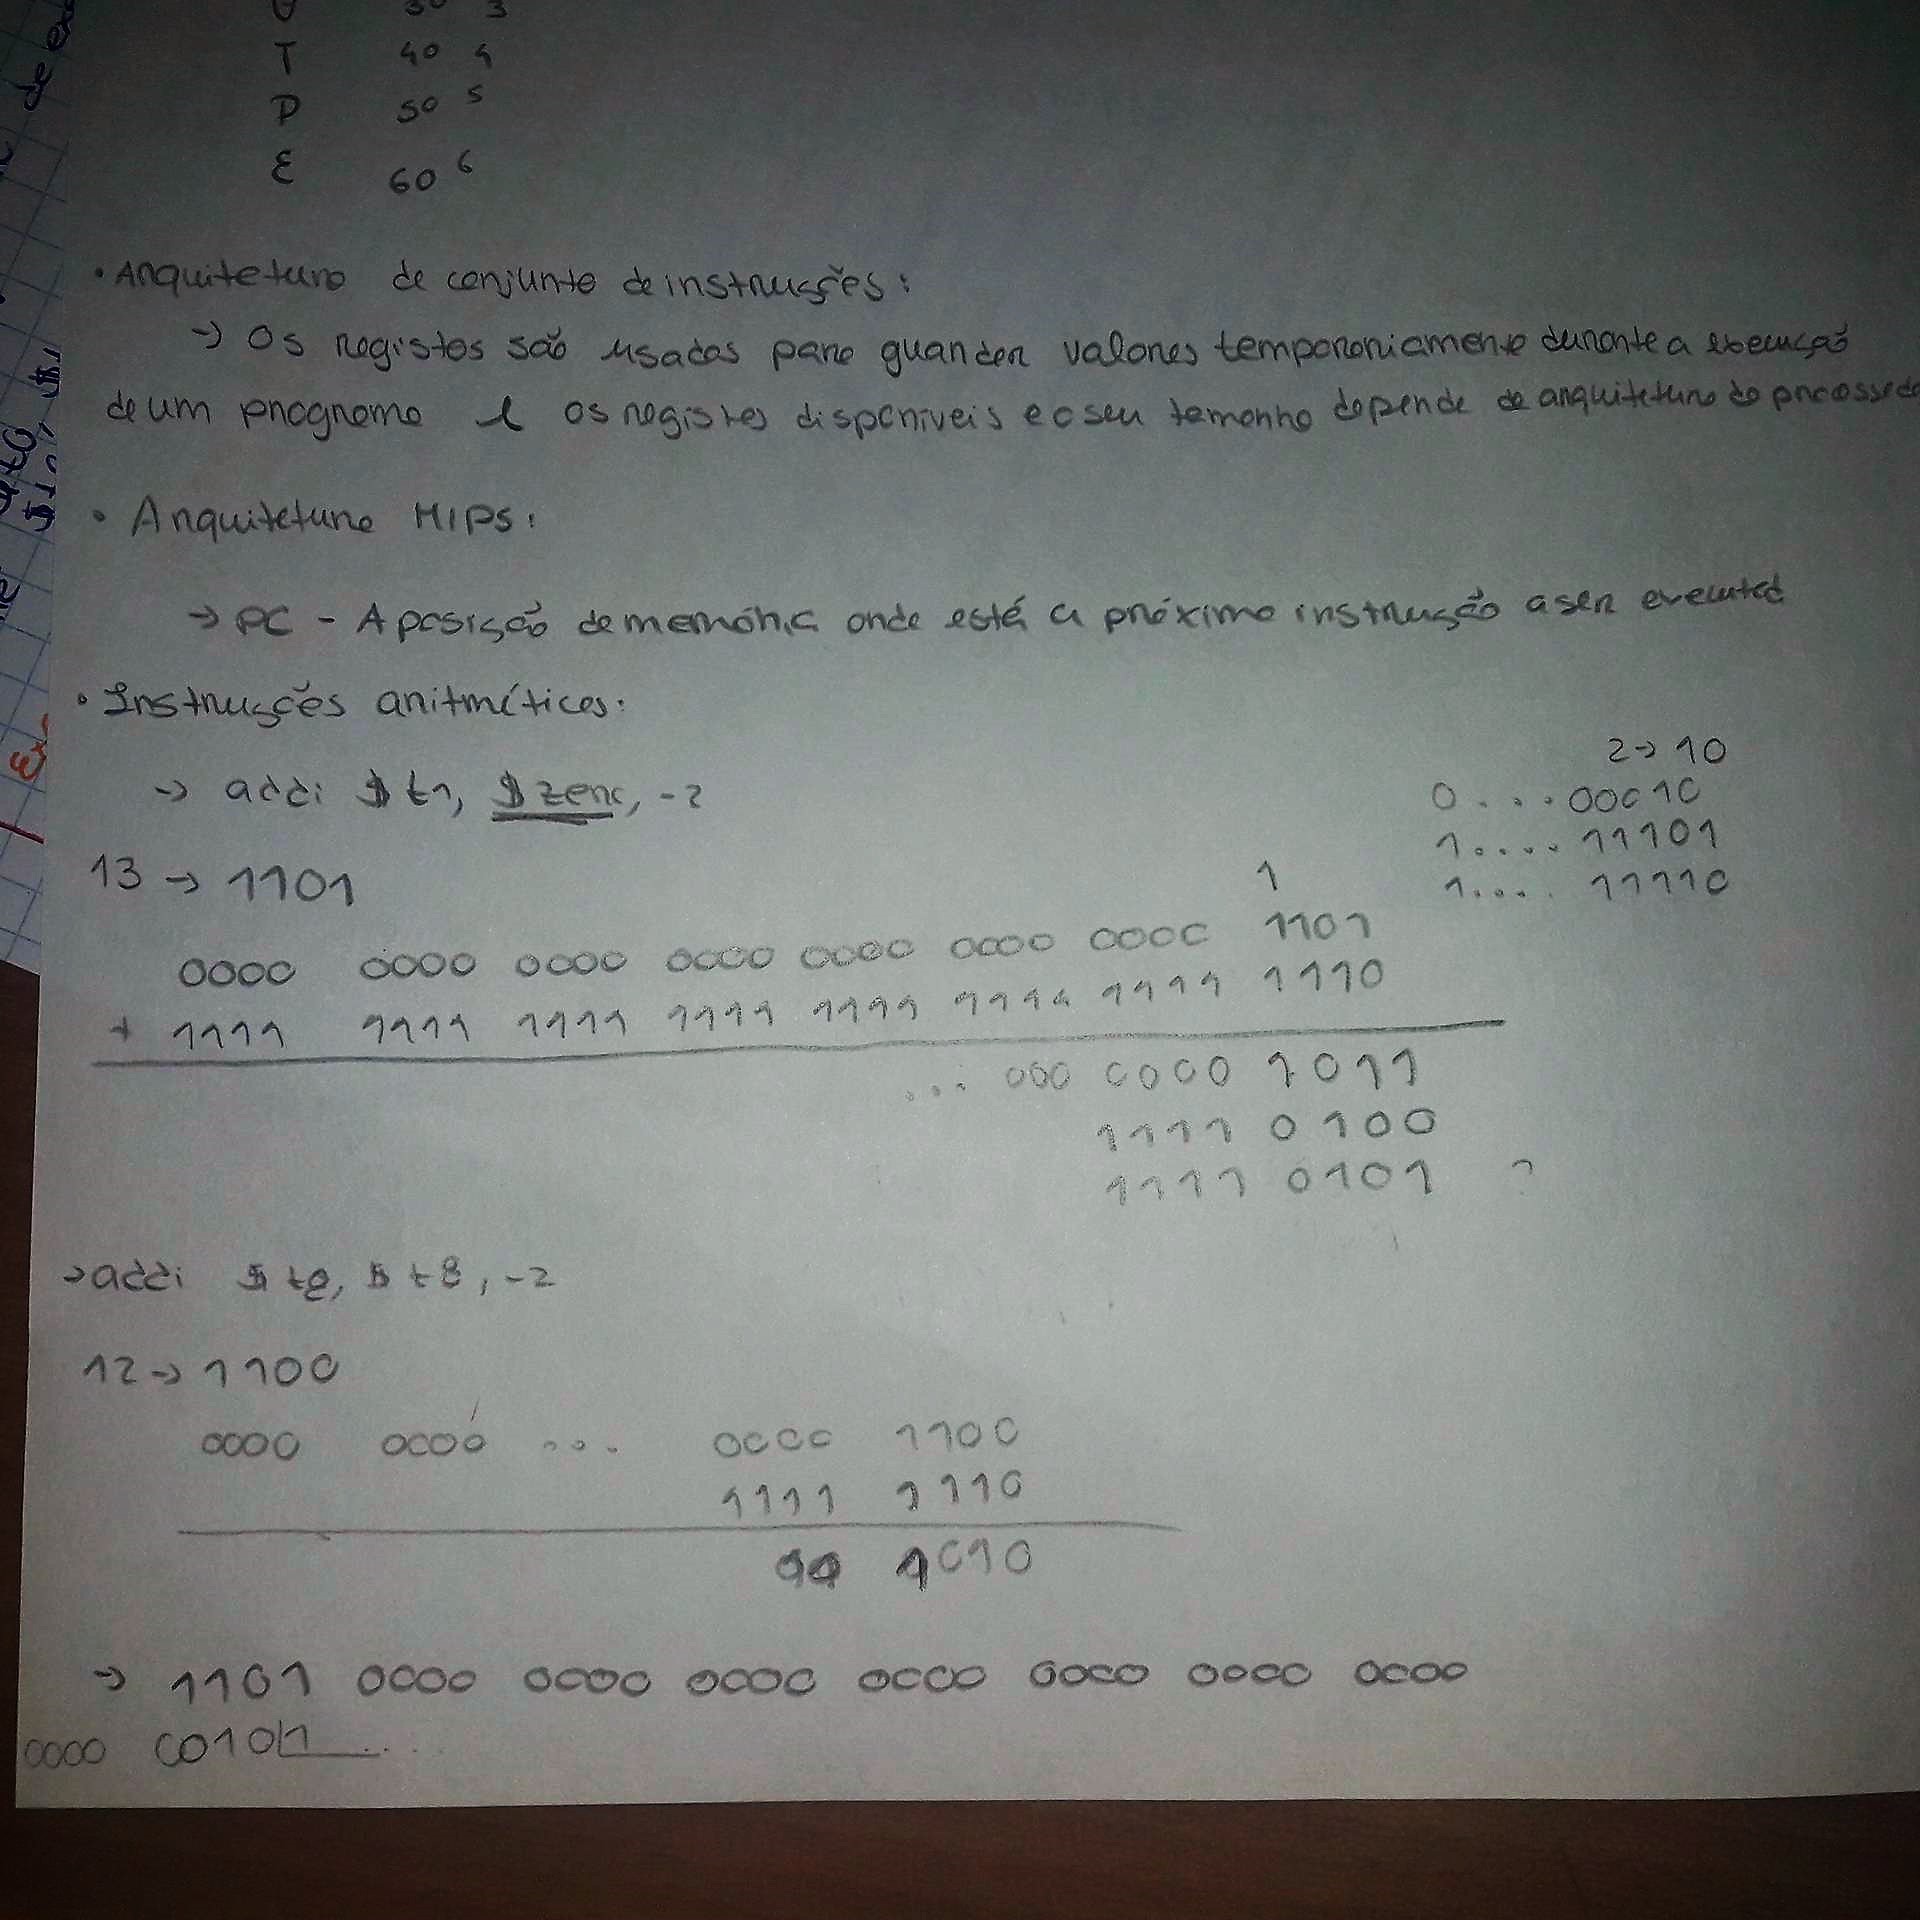 30 3
T 40 4
P 50 5
E 60 6
de ex
• Arquitetura de conjunto de instruções:
→ Os registos são usados para guardar valores temporariamente durante a execução
de um programa e os registos disponíveis e o seu tamanho depende da arquitetura do processado
• Arquitetura MIPS:
→ PC - A posição de memória onde está a próxima instrução a ser executad
• Instruções aritméticas:
2 → 10
→ addi $t1, $zero, -2
0 . . . . 00010
1 . . . . 11101
13 → 1101
1
1 . . . . 11110
0000 0000 0000 0000 0000 0000 0000 1101
+ 1111 1111 1111 1111 1111 1111 1111 1110
... 000 0000 1011
1111 0100
1111 0101 ?
→ addi $t8, $t8, -2
12 → 1100
0000 0000 ... 0000 1100
1111 1110
1010
→ 1101 0000 0000 0000 0000 0000 0000 0000
0000